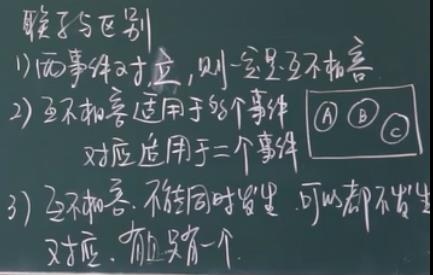 联系与区别
1)两事件对立,则一定是互不相容
2)互不相容适用于多个事件
对应适用于二个事件
A B C
3)互不相容.不能同时发生.可以都不发生
对应.有且只有一个.